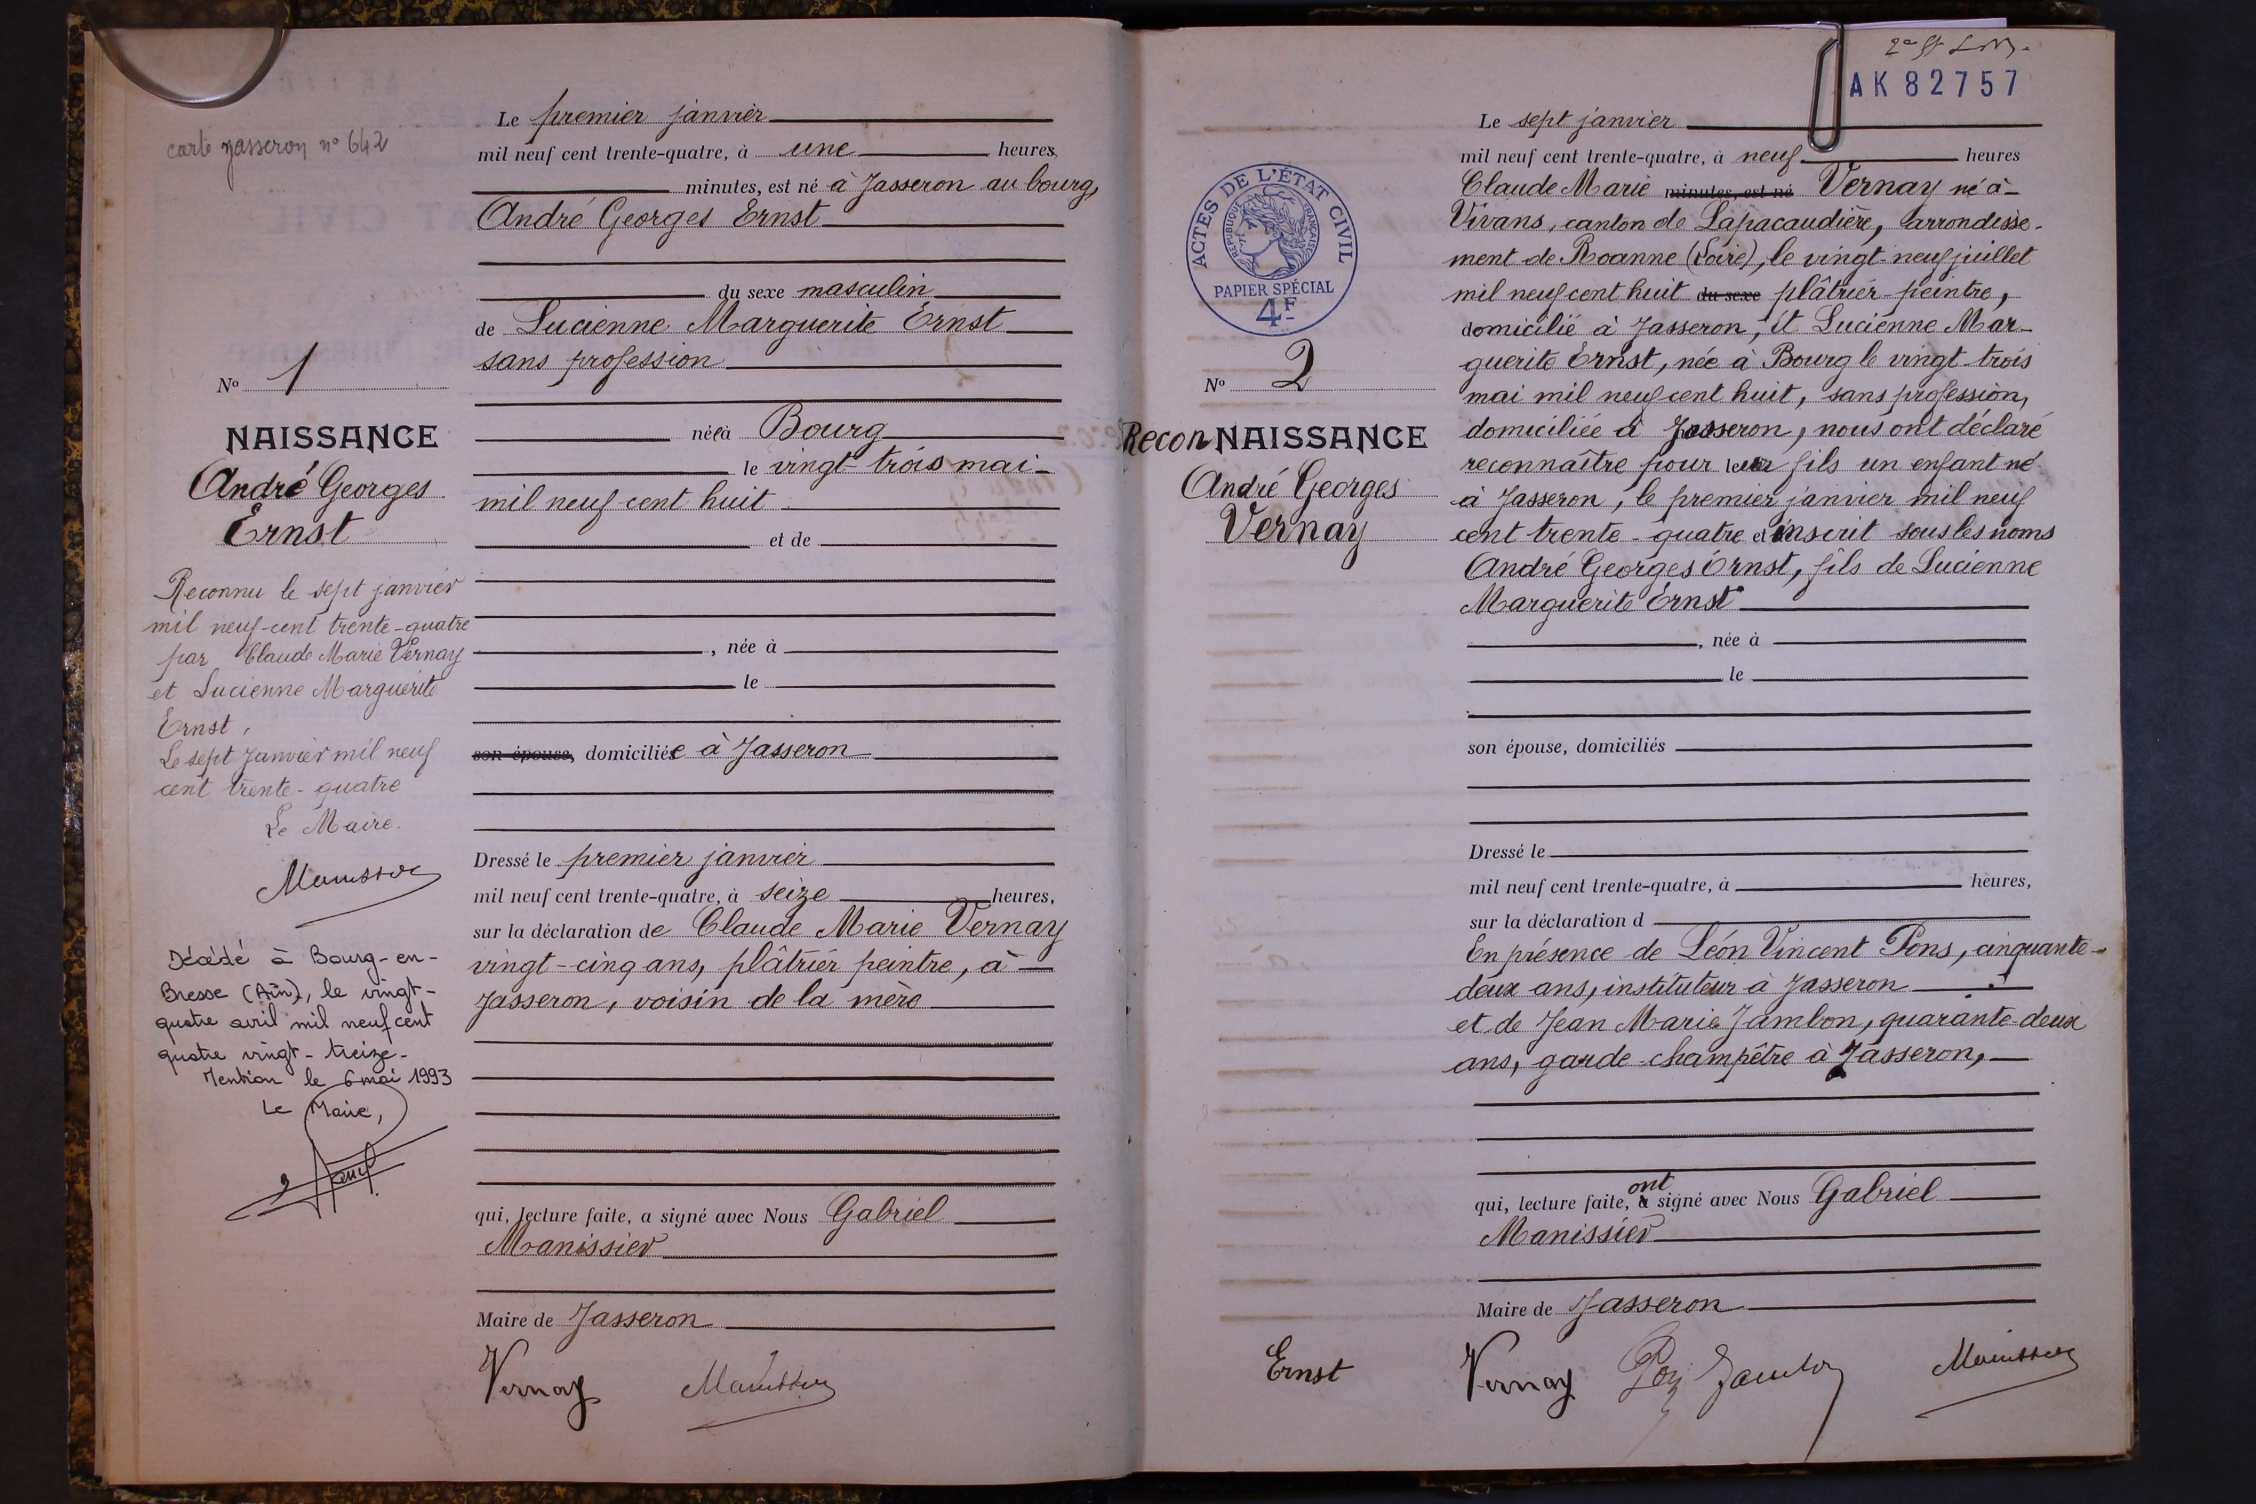 carte Jasseron n° 642
Le premier janvier
mil neuf cent trente-quatre, à une heures
minutes, est né à Jasseron au bourg,
André Georges Ernst
du sexe masculin
de Lucienne Marguerite Ernst
sans profession
née à Bourg
le vingt-trois mai
mil neuf cent huit
et de
, née à
le
son épouse, domiciliée à Jasseron
Dressé le premier janvier
mil neuf cent trente-quatre, à seize heures,
sur la déclaration de Claude Marie Vernay
vingt-cinq ans, plâtrier peintre, à
Jasseron, voisin de la mère
qui, lecture faite, a signé avec Nous Gabriel
Manissier
Maire de Jasseron
Vernay Manissier
N° 1
NAISSANCE
André Georges
Ernst
Reconnu le sept janvier
mil neuf-cent trente-quatre
par Claude Marie Vernay
et Lucienne Marguerite
Ernst,
Le sept Janvier mil neuf
cent trente-quatre
Le Maire.
Manissier
Décédé à Bourg-en-
Bresse (Ain), le vingt-
quatre avril mil neuf cent
quatre vingt-treize-
Mention le 6 mai 1993
Le Maire,
AK 82757
ACTES DE L'ÉTAT CIVIL
RÉPUBLIQUE FRANÇAISE
PAPIER SPÉCIAL
4F
N° 2
ReconNAISSANCE
André Georges
Vernay
Le sept janvier
mil neuf cent trente-quatre, à neuf heures
Claude Marie minutes, est né Vernay né à
Vivans, canton de Lapacaudière, arrondisse-
ment de Roanne (Loire), le vingt-neuf juillet
mil neuf cent huit du sexe plâtrier-peintre,
domicilié à Jasseron, et Lucienne Mar-
guerite Ernst, née à Bourg le vingt-trois
mai mil neuf cent huit, sans profession,
domiciliée à Jasseron, nous ont déclaré
reconnaître pour leur fils un enfant né
à Jasseron, le premier janvier mil neuf
cent trente-quatre et inscrit sous les noms
André Georges Ernst, fils de Lucienne
Marguerite Ernst
, née à
le
son épouse, domiciliés
Dressé le
mil neuf cent trente-quatre, à heures,
sur la déclaration d
En présence de Léon Vincent Pons, cinquante-
deux ans, instituteur à Jasseron
et de Jean Marie Jambon, quarante-deux
ans, garde-champêtre à Jasseron,
ont
qui, lecture faite, a signé avec Nous Gabriel
Manissier
Maire de Jasseron
Ernst Vernay Pons Jambon Manissier